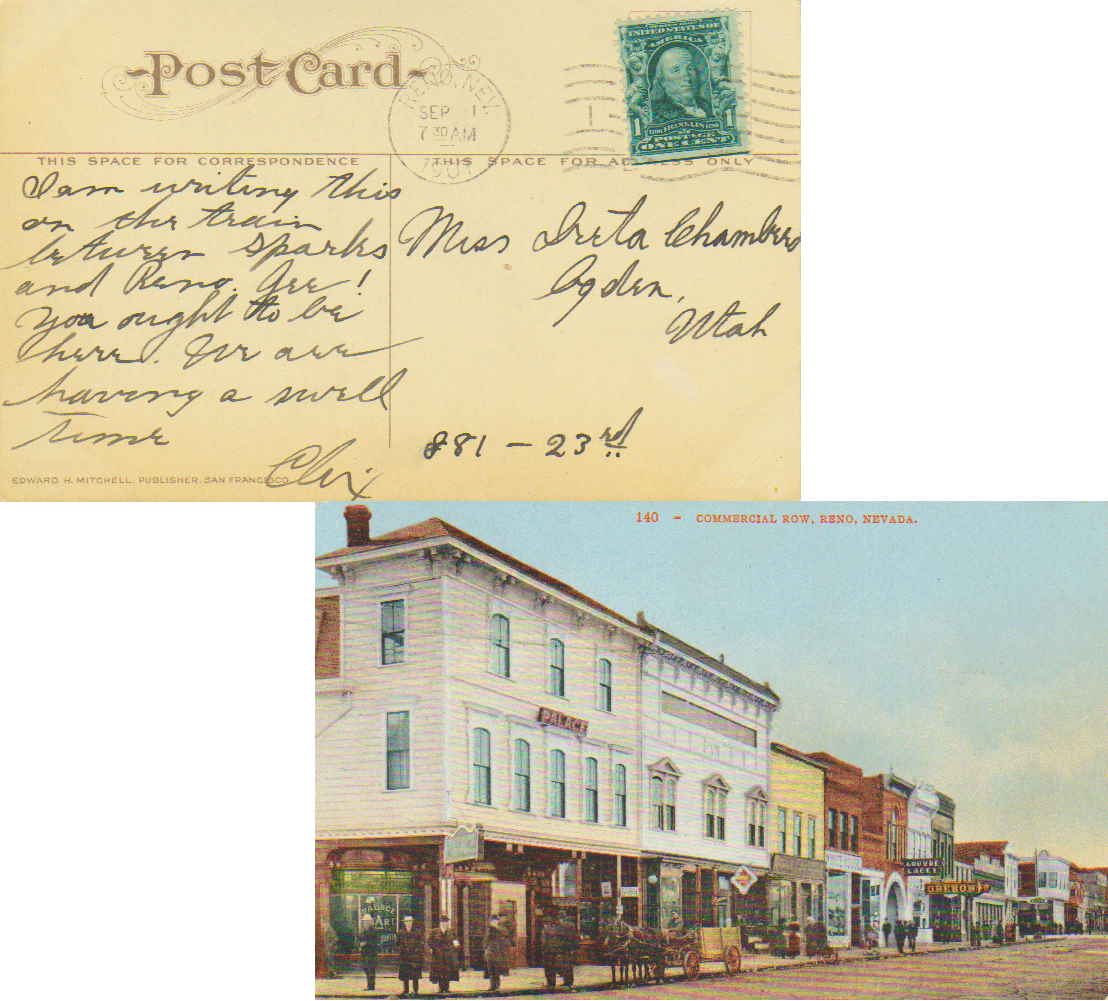 Post Card
UNITED STATES OF
AMERICA
1 1
POSTAGE
ONE CENT
RENO, NEV.
SEP 1
7 30 AM
THIS SPACE FOR CORRESPONDENCE
THIS SPACE FOR ADDRESS ONLY
I am writing this
on the train
between Sparks
and Reno. Gee!
You ought to be
here. We are
having a swell
time
Miss Ireta Chambers
Ogden,
Utah
881 - 23rd
EDWARD H. MITCHELL, PUBLISHER, SAN FRANCISCO
140 - COMMERCIAL ROW, RENO, NEVADA.
PALACE
LOUVRE
LACEY
OREGON
PALACE